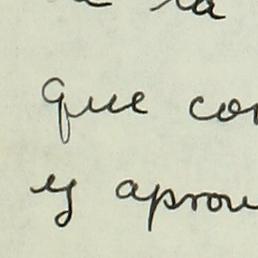 la
que con
y aprou